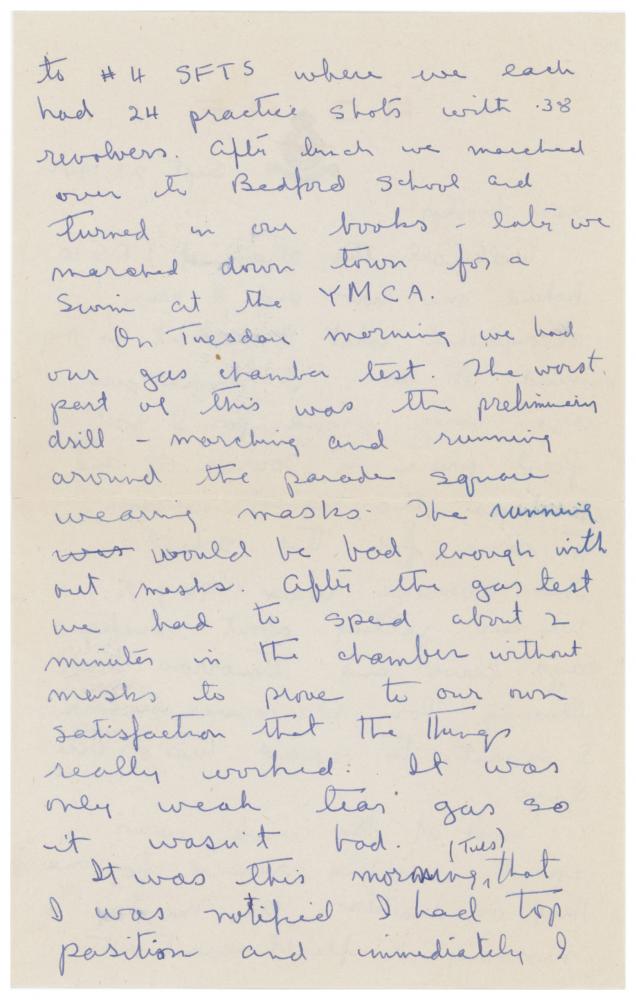 to # 4 SFTS where we each
had 24 practice shots with .38
revolvers. After lunch we marched
over to Bedford School and
turned in our books - later we
marched down town for a
swim at the YMCA.
On Tuesday morning we had
our gas chamber test. The worst
part of this was the preliminary
drill - marching and running
around the parade square
wearing masks. The running
was would be bad enough with
out masks. After the gas test
we had to spend about 2
minutes in the chamber without
masks to prove to our own
satisfaction that the things
really worked. It was
only weak tear gas so
it wasn't bad.
(Tues)
It was this morning, that
I was notified I had top
position and immediately I